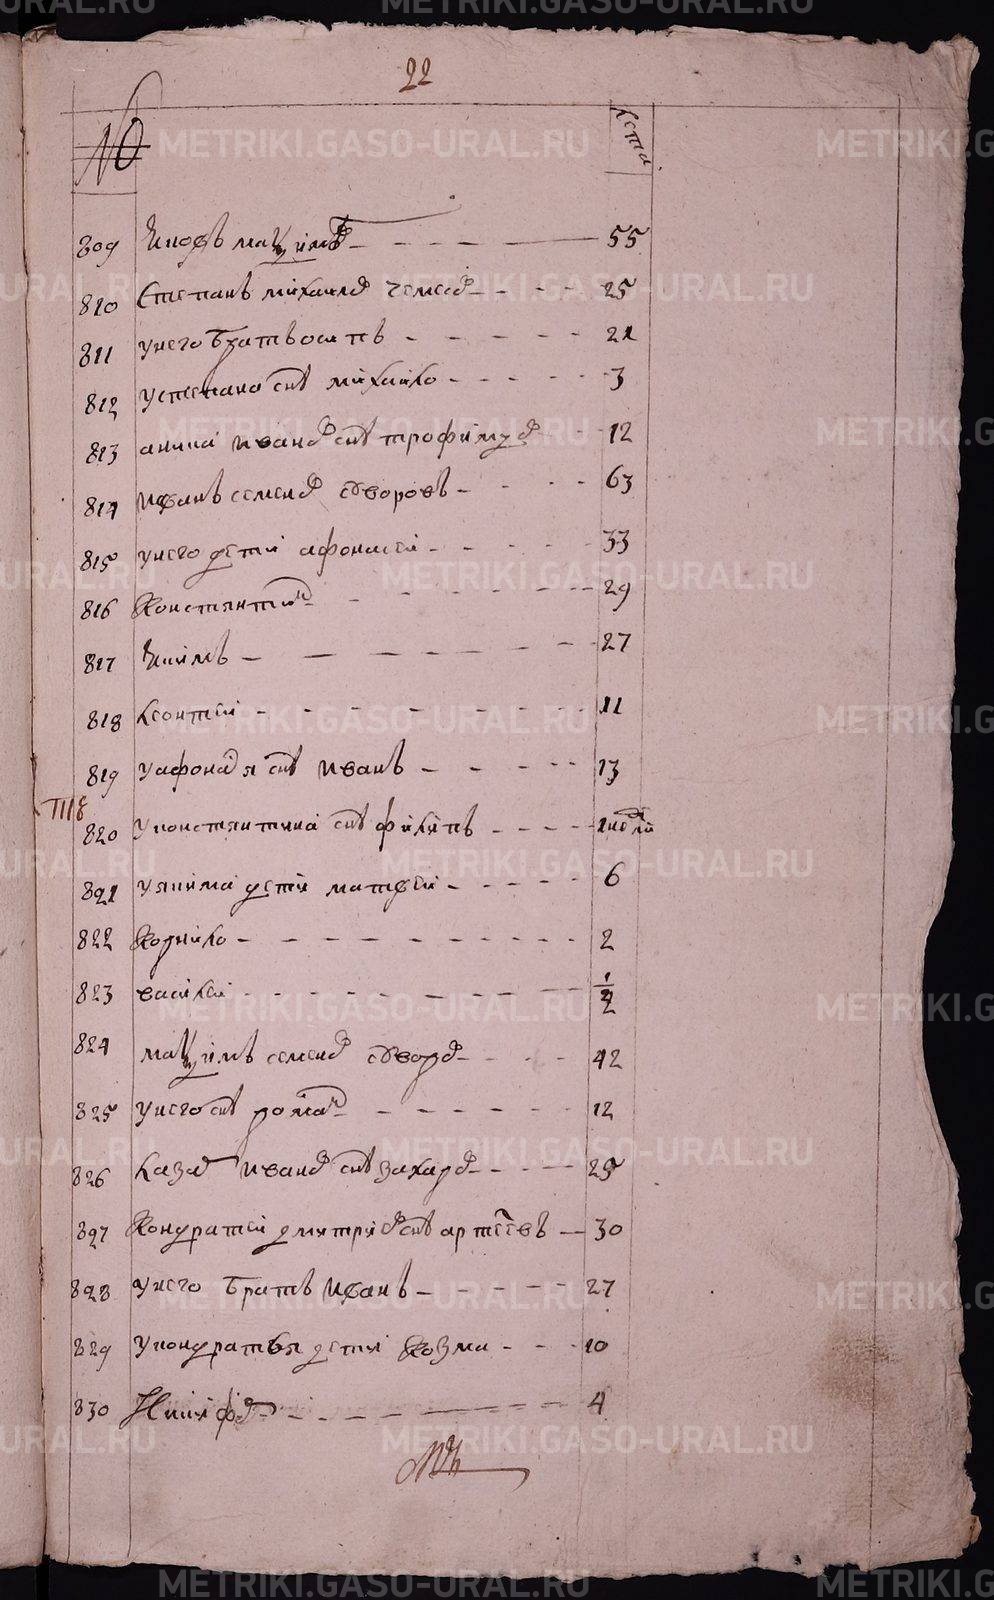 22
№ лета
809 Якофъ маѯимъ 55
810 Степанъ михаилов 25
811 унего братъ осипъ 21
812 устепана снъ михаило 3
813 иванов снъ трофимов 12
814 иванъ семенов 63
815 унего дети афонасеи 33
816 констянтин 29
817 Якимъ 27
818 леонтеи 11
819 уафонася снъ иванъ 13
820 уконстянтина снъ филипъ
821 уякима дети матвеи 6
822 корнило 2
823 василеи 1/2
824 маѯимъ семенов 42
825 унего снъ роман 12
826 иванов снъ захаров 25
827 кондратеи дмитриев снъ артеевъ 30
828 унего братъ иванъ 27
829 укондратья дети козма 10
830 4
METRIKI.GASO-URAL.RU